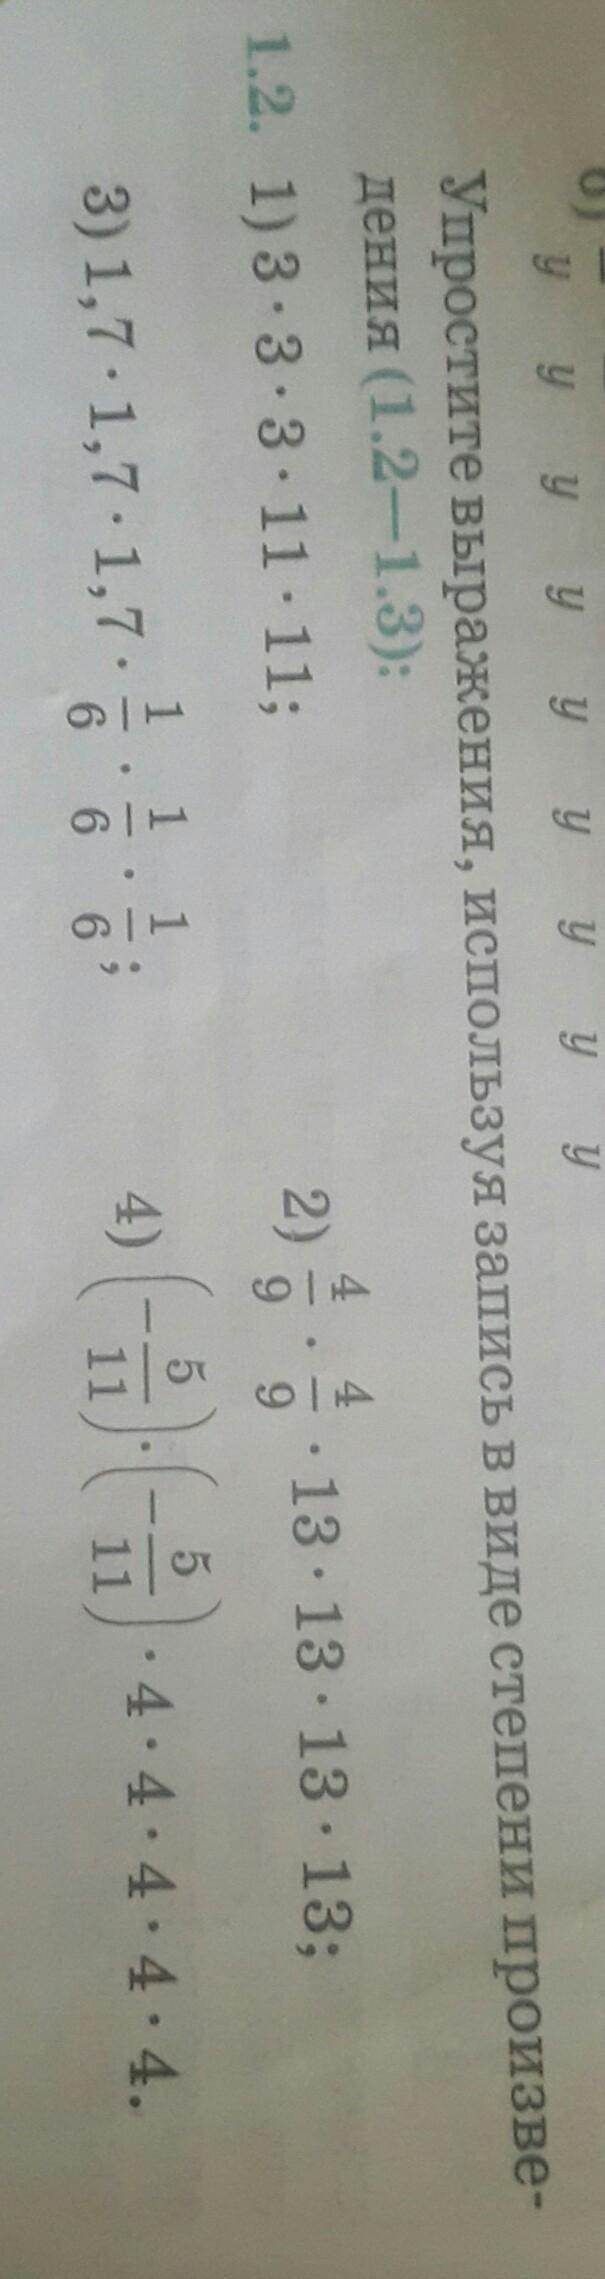 б)
y y y y y y y y y
Упростите выражения, используя запись в виде степени произве-
дения (1.2—1.3):
1.2. 1) 3 · 3 · 3 · 11 · 11; 2) 4/9 · 4/9 · 13 · 13 · 13 · 13;
3) 1,7 · 1,7 · 1,7 · 1/6 · 1/6 · 1/6; 4) (−5/11) · (−5/11) · 4 · 4 · 4 · 4 · 4.